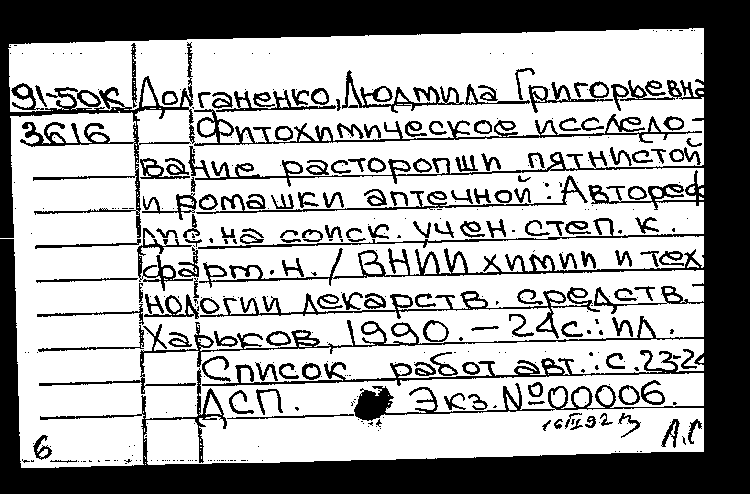 91-50К Долганенко, Людмила Григорьевна
3616 Фитохимическое исследо-
вание расторопши пятнистой
и ромашки аптечной : Автореф.
дис. на соиск. учен. степ. к.
фарм. н. / ВНИИ химии и тех-
нологии лекарств. средств. -
Харьков, 1990. – 24 с. : ил.
Список работ авт. : с. 23-24
ДСП. Экз. № 00006.
16 III 92
6 А.С